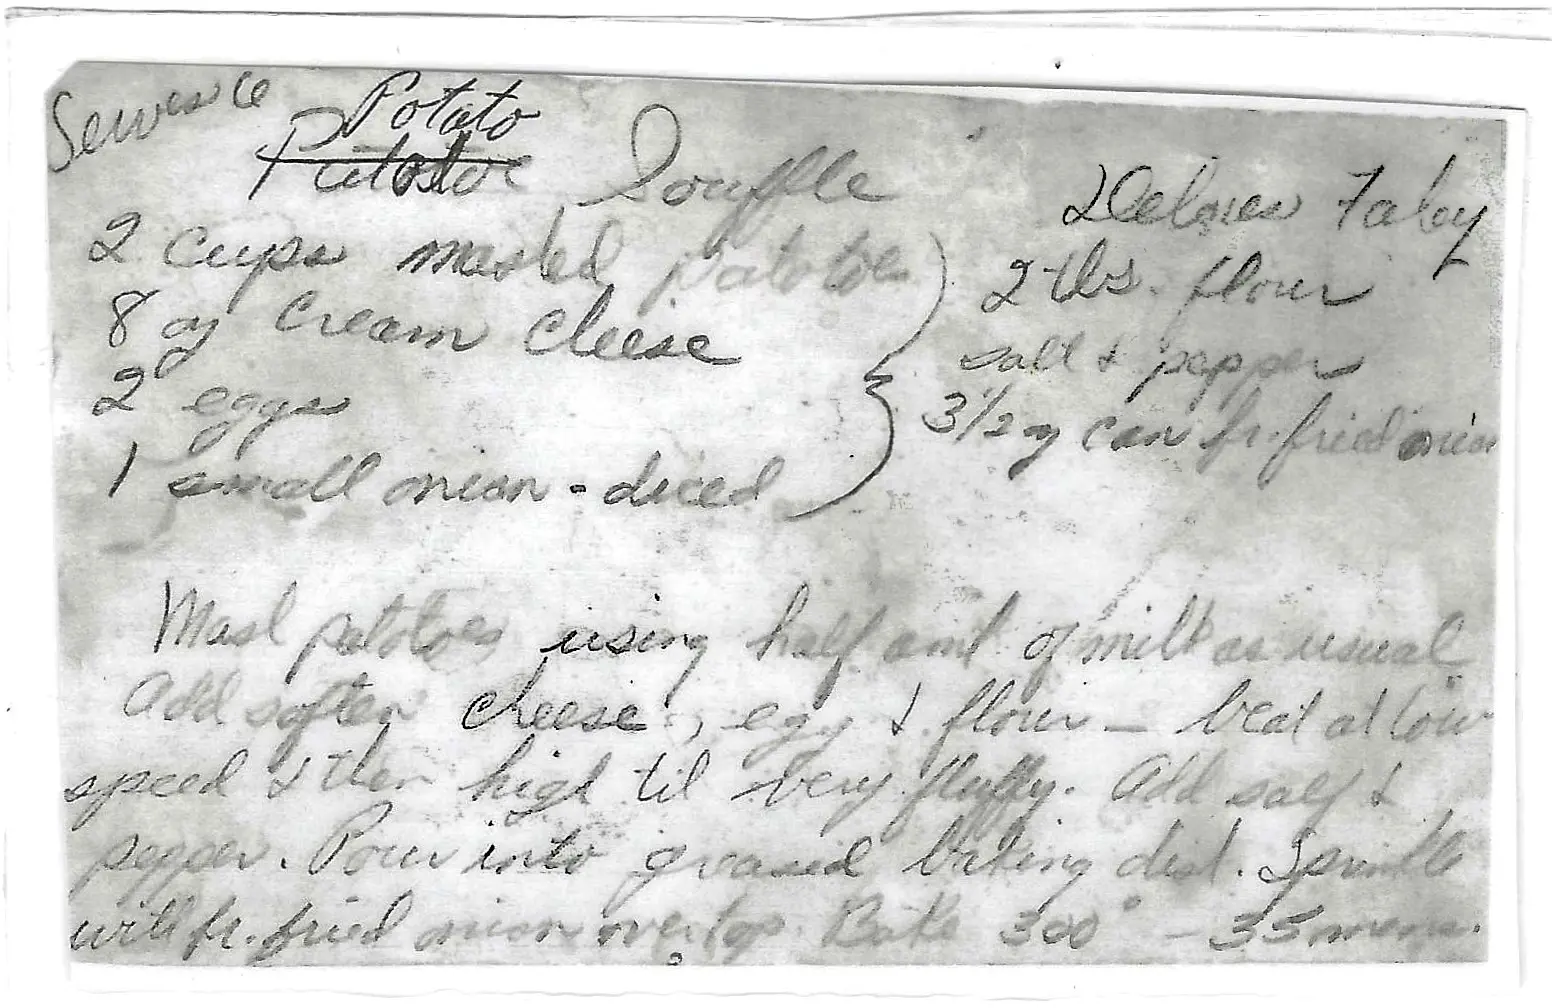 Serves 6
Potato
Potatoe Souffle
Delores Faby
2 cups mashed potatoes
8 oz cream cheese
2 eggs
1 small onion - diced
2 tbs. flour
salt & pepper
3 1/2 oz can fr. fried onion
Mash potatoes using half amt of milk as usual
Add soften cheese, egg & flour - beat at low
speed & then high til very fluffy. Add salt &
pepper. Pour into greased baking dish. Sprinkle
with fr. fried onion over top. Bake 300° - 35 mins.